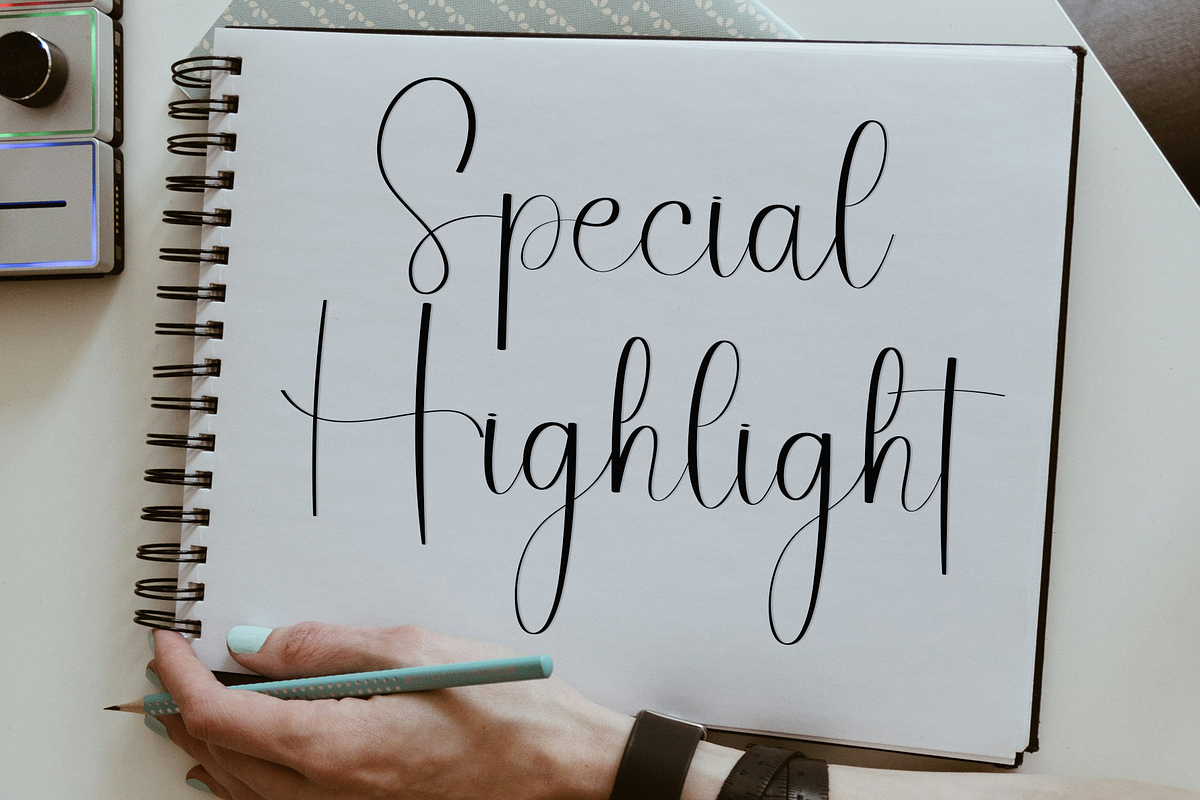 Special
Highlight